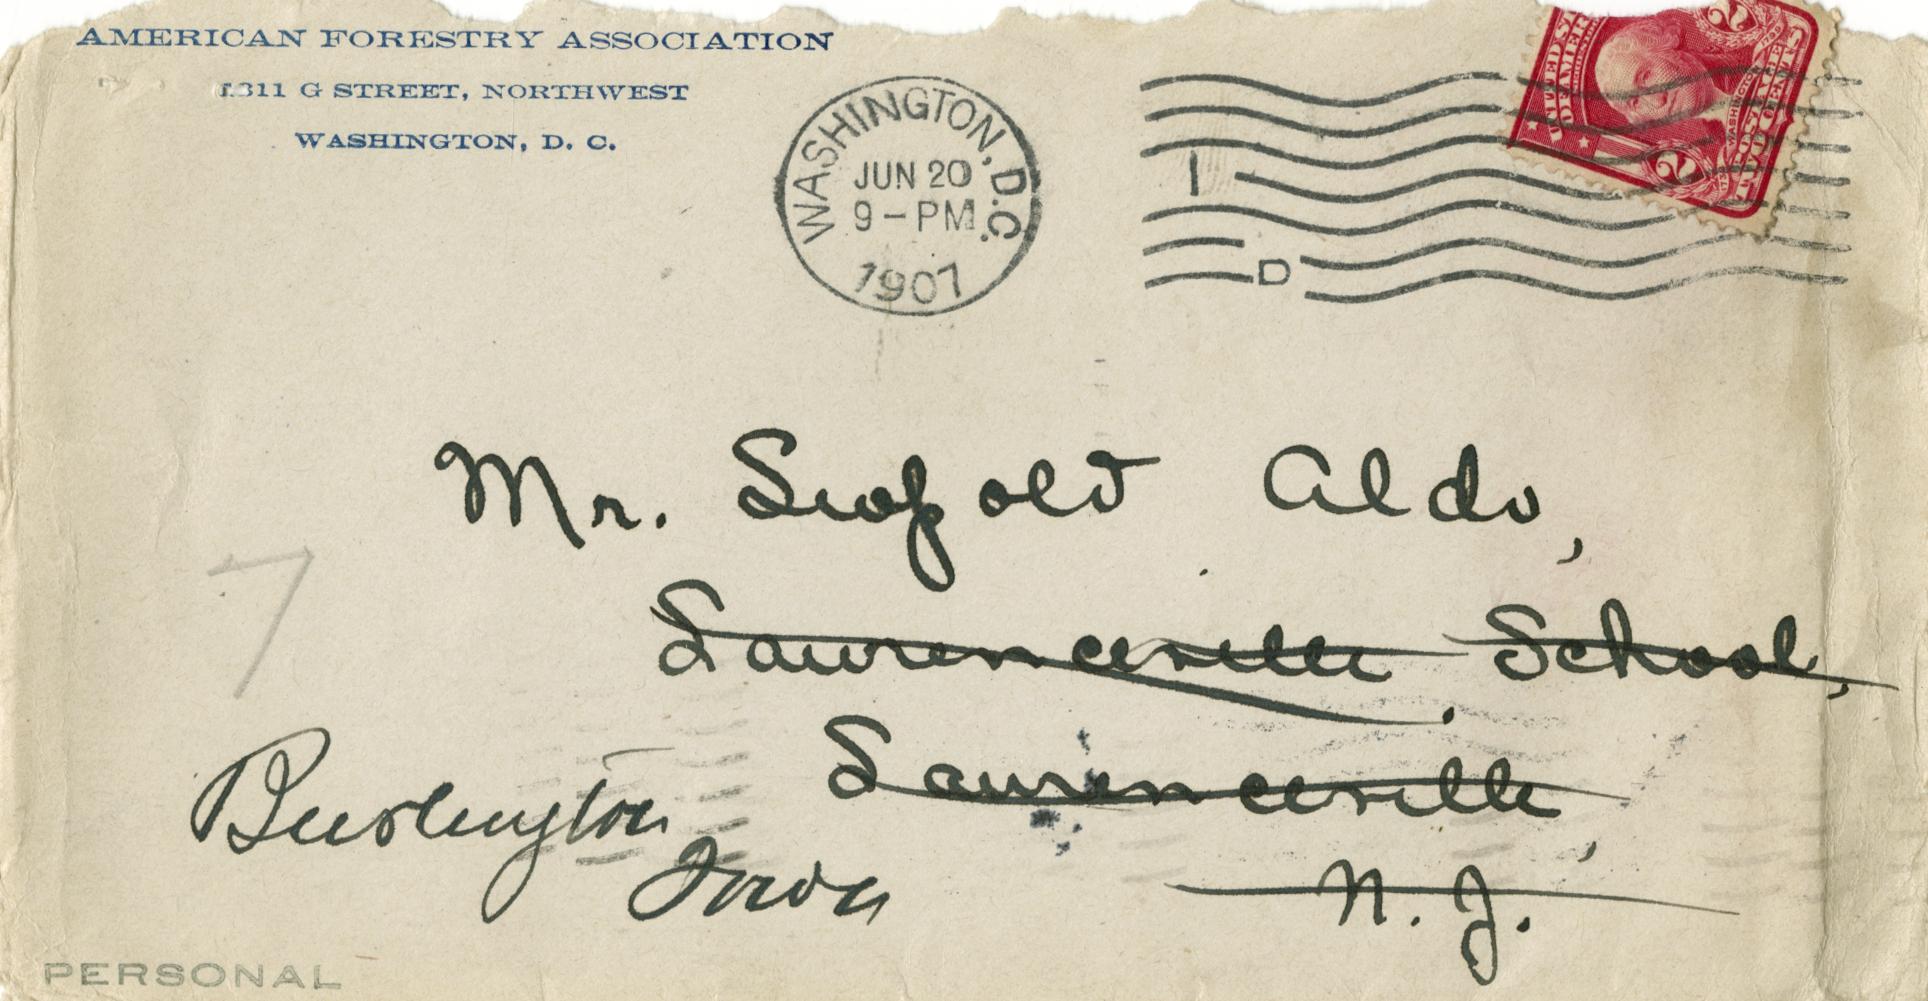 AMERICAN FORESTRY ASSOCIATION
1311 G STREET, NORTHWEST
WASHINGTON, D. C.
WASHINGTON, D.C.
JUN 20
9-PM
1907
1
D
2
2
WASHINGTON
TWO CENTS
Mr. Leopold Aldo,
Lawrenceville School,
Lawrenceville,
N. J.
Burlington
Iowa
7
PERSONAL